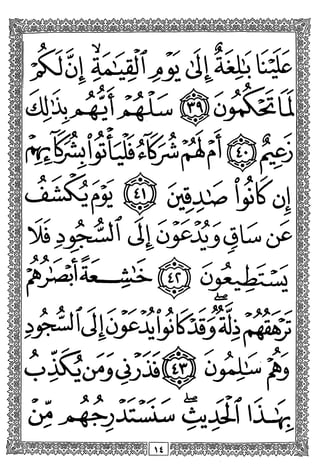 عَلَيْنَا بَٰلِغَةٌ إِلَىٰ يَوْمِ ٱلْقِيَٰمَةِ ۙ إِنَّ لَكُمْ
لَمَا تَحْكُمُونَ ٣٩ سَلْهُمْ أَيُّهُم بِذَٰلِكَ
زَعِيمٌ ٤٠ أَمْ لَهُمْ شُرَكَآءُ فَلْيَأْتُوا۟ بِشُرَكَآئِهِمْ
إِن كَانُوا۟ صَٰدِقِينَ ٤١ يَوْمَ يُكْشَفُ
عَن سَاقٍ وَيُدْعَوْنَ إِلَى ٱلسُّجُودِ فَلَا
يَسْتَطِيعُونَ ٤٢ خَٰشِعَةً أَبْصَٰرُهُمْ
تَرْهَقُهُمْ ذِلَّةٌ ۖ وَقَدْ كَانُوا۟ يُدْعَوْنَ إِلَى ٱلسُّجُودِ
وَهُمْ سَٰلِمُونَ ٤٣ فَذَرْنِى وَمَن يُكَذِّبُ
بِهَٰذَا ٱلْحَدِيثِ ۖ سَنَسْتَدْرِجُهُم مِّنْ
١٤